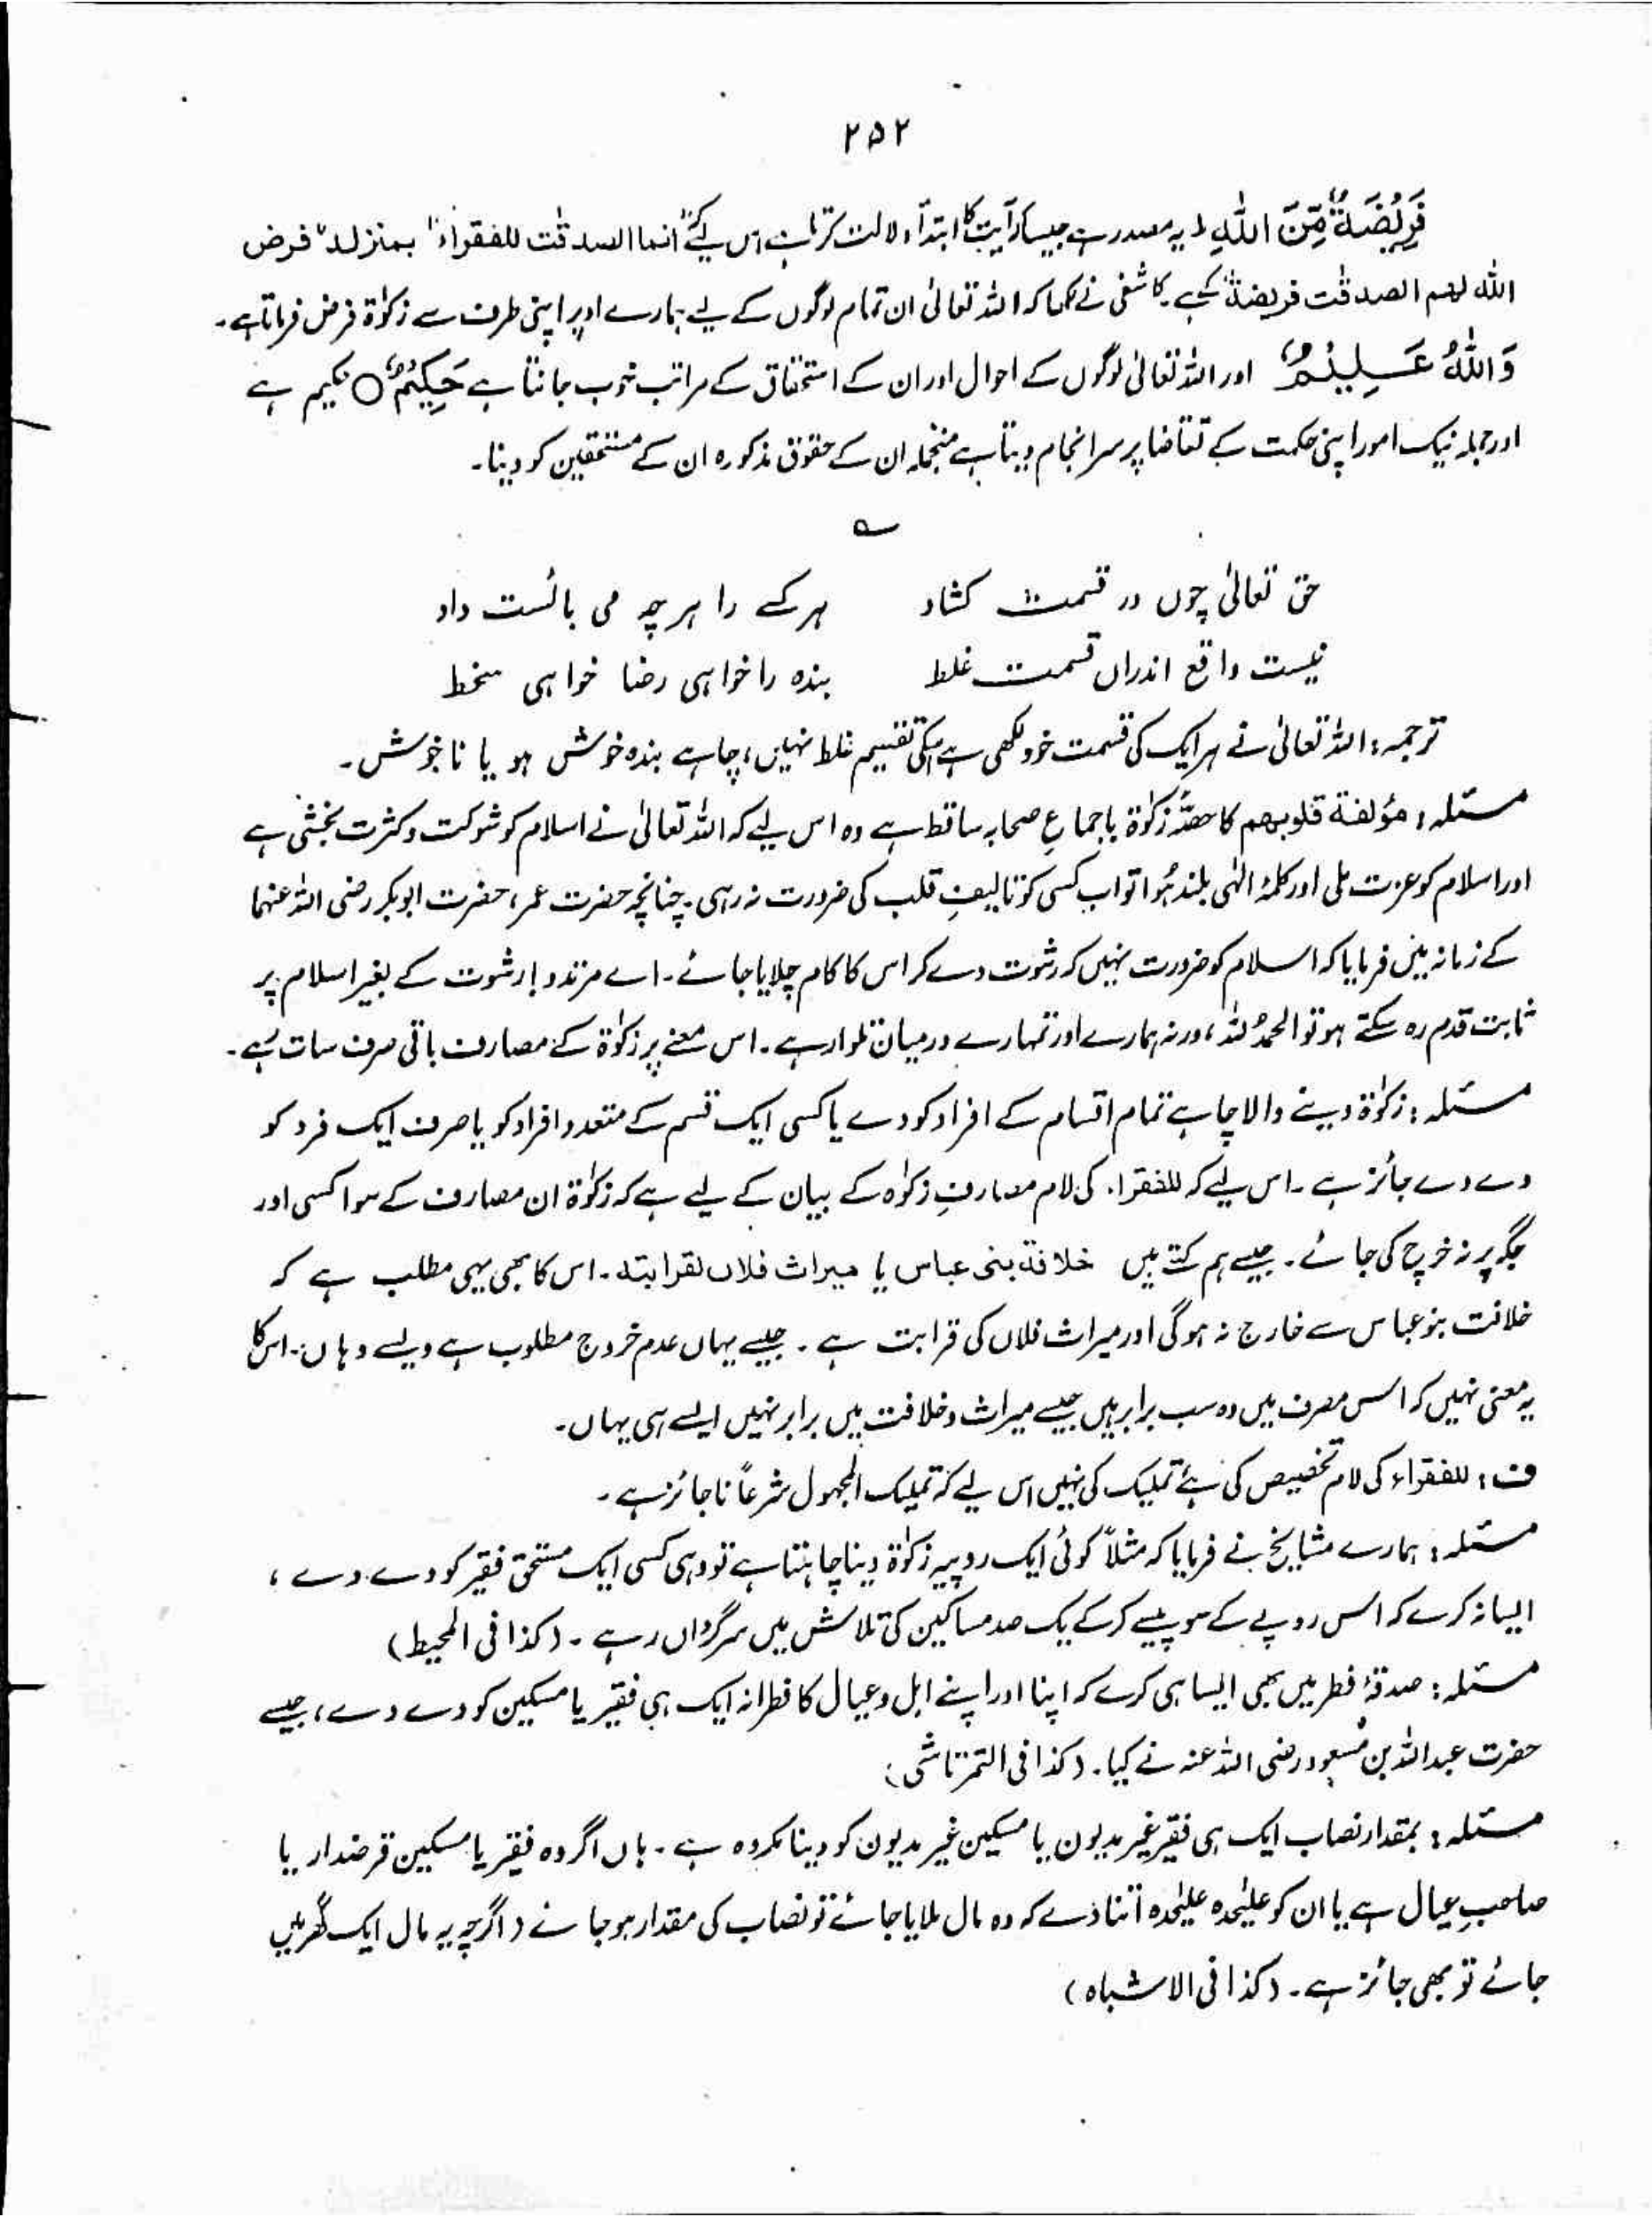 ۲۵۲
فَرِیْضَةً مِّنَ اللّٰهِ ط یہ مصدر ہے جیسا کہ آیت کا ابتدأ دلالت کرتا ہے اس لیے "انما الصدقٰت للفقراء" بمنزلہ "فرض
الله لهم الصدقٰت فريضة" کے ہے۔ کاشفی نے لکھا کہ اللہ تعالیٰ ان تمام لوگوں کے لیے ہمارے اوپر اپنی طرف سے زکوٰۃ فرض فرماتا ہے۔
وَاللّٰهُ عَلِیْمٌ اور اللہ تعالیٰ لوگوں کے احوال اور ان کے استحقاق کے مراتب خوب جانتا ہے حَكِیْمٌ ○ حکیم ہے
اور جملہ نیک امور اپنی حکمت کے تقاضا پر سرانجام دیتا ہے منجملہ ان کے حقوق مذکورہ ان کے مستحقین کو دینا۔
؎
حق تعالیٰ چوں در قسمت کشاد ہر کسے را ہر چہ می بائست داد
نیست واقع اندراں قسمت غلط بندہ را خواہی رضا خواہی سخط
ترجمہ: اللہ تعالیٰ نے ہر ایک کی قسمت خود لکھی ہے اسکی تقسیم غلط نہیں، چاہے بندہ خوش ہو یا ناخوش۔
مسئلہ: مؤلفة قلوبهم کا حصّہ زکوٰۃ باجماعِ صحابہ ساقط ہے وہ اس لیے کہ اللہ تعالیٰ نے اسلام کو شوکت و کثرت بخشی ہے
اور اسلام کو عزت ملی اور کلمۂ الٰہی بلند ہُوا تو اب کسی کو تالیفِ قلب کی ضرورت نہ رہی۔ چنانچہ حضرت عمر، حضرت ابوبکر رضی اللہ عنہما
کے زمانہ میں فرمایا کہ اسلام کو ضرورت نہیں کہ رشوت دے کر اس کا کام چلایا جائے۔ اے مرتدو! رشوت کے بغیر اسلام پر
ثابت قدم رہ سکتے ہو تو الحمدُ للہ، ورنہ ہمارے اور تمہارے درمیان تلوار ہے۔ اس معنے پر زکوٰۃ کے مصارف باقی صرف سات ہے۔
مسئلہ: زکوٰۃ دینے والا چاہے تمام اقسام کے افراد کو دے یا کسی ایک قسم کے متعدد افراد کو یا صرف ایک فرد کو
دے دے جائز ہے۔ اس لیے کہ للفقراء کی لام مصارفِ زکوٰۃ کے بیان کے لیے ہے کہ زکوٰۃ ان مصارف کے سوا کسی اور
جگہ پر نہ خرچ کی جائے۔ جیسے ہم کہتے ہیں خلافة بنى عباس یا ميراث فلاں لقرابته۔ اس کا بھی یہی مطلب ہے کہ
خلافت بنو عباس سے خارج نہ ہوگی اور میراث فلاں کی قرابت ہے۔ جیسے یہاں عدم خروج مطلوب ہے ویسے وہاں۔ اس کا
یہ معنی نہیں کہ اس مصرف میں وہ سب برابر ہیں جیسے میراث و خلافت میں برابر نہیں ایسے ہی یہاں۔
ف: للفقراء کی لام تخصیص کی ہے تملیک کی نہیں اس لیے کہ تملیک المجہول شرعاً ناجائز ہے۔
مسئلہ: ہمارے مشایخ نے فرمایا کہ مثلاً کوئی ایک روپیہ زکوٰۃ دینا چاہتا ہے تو وہی کسی ایک مستحق فقیر کو دے دے،
ایسا نہ کرے کہ اس روپے کے سو پیسے کر کے یک صد مساکین کی تلاش میں سرگرداں رہے۔ (کذا فی المحیط)
مسئلہ: صدقۂ فطر میں بھی ایسا ہی کرے کہ اپنا اور اپنے اہل و عیال کا فطرانہ ایک ہی فقیر یا مسکین کو دے دے، جیسے
حضرت عبداللہ بن مسعود رضی اللہ عنہ نے کیا۔ (کذا فی التمرتاشی)
مسئلہ: بمقدار نصاب ایک ہی فقیر غیر مدیون یا مسکین غیر مدیون کو دینا مکروہ ہے۔ ہاں اگر وہ فقیر یا مسکین قرضدار یا
صاحبِ عیال ہے یا ان کو علیٰحدہ علیٰحدہ اتنا دے کہ وہ مال ملایا جائے تو نصاب کی مقدار ہو جائے (اگرچہ یہ مال ایک گھر میں
جائے تو بھی جائز ہے۔ (کذا فی الاشباہ)